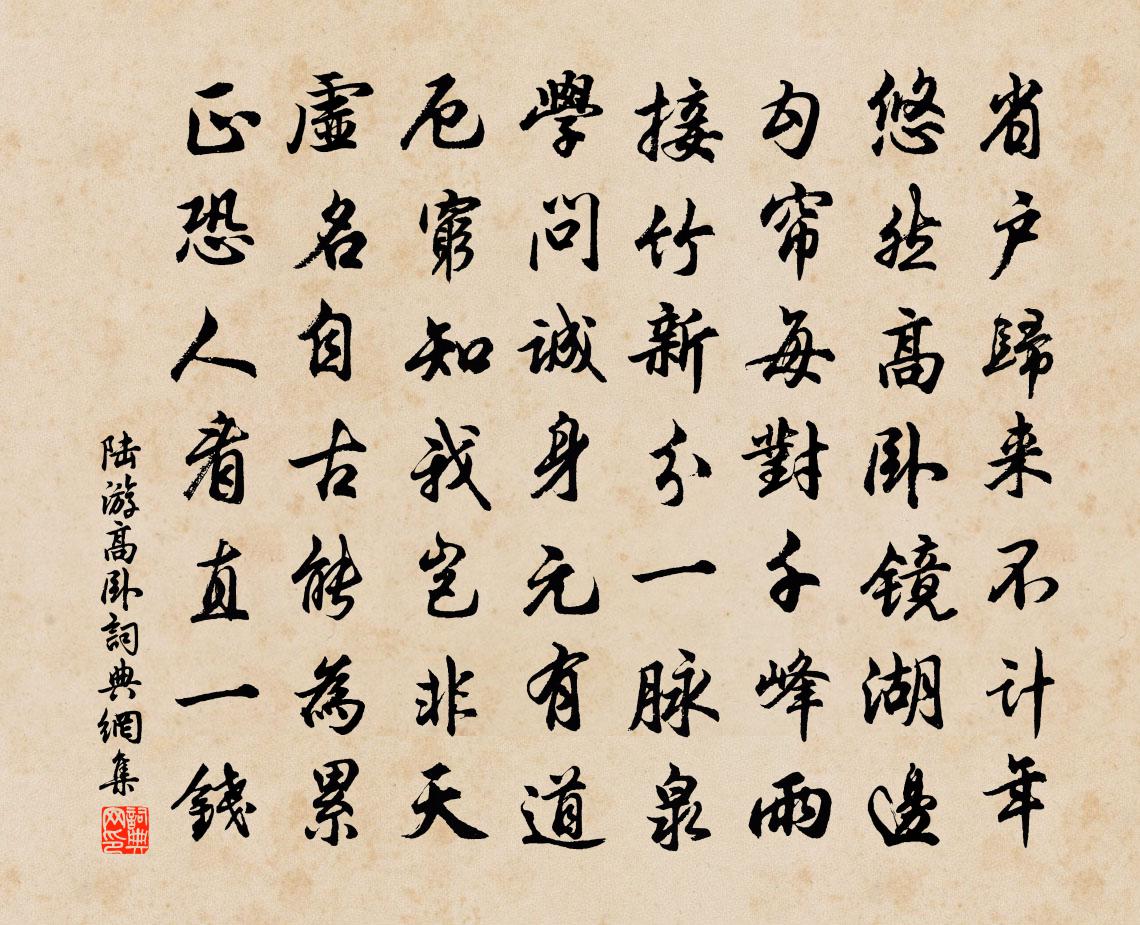 省户歸来不计年
悠然高卧镜湖邊
勾帘每對千峰雨
接竹新分一脉泉
學問誠身元有道
厄窮知我豈非天
虛名自古能為累
正恐人看直一錢
陆游高卧詞典網集
詞典网印